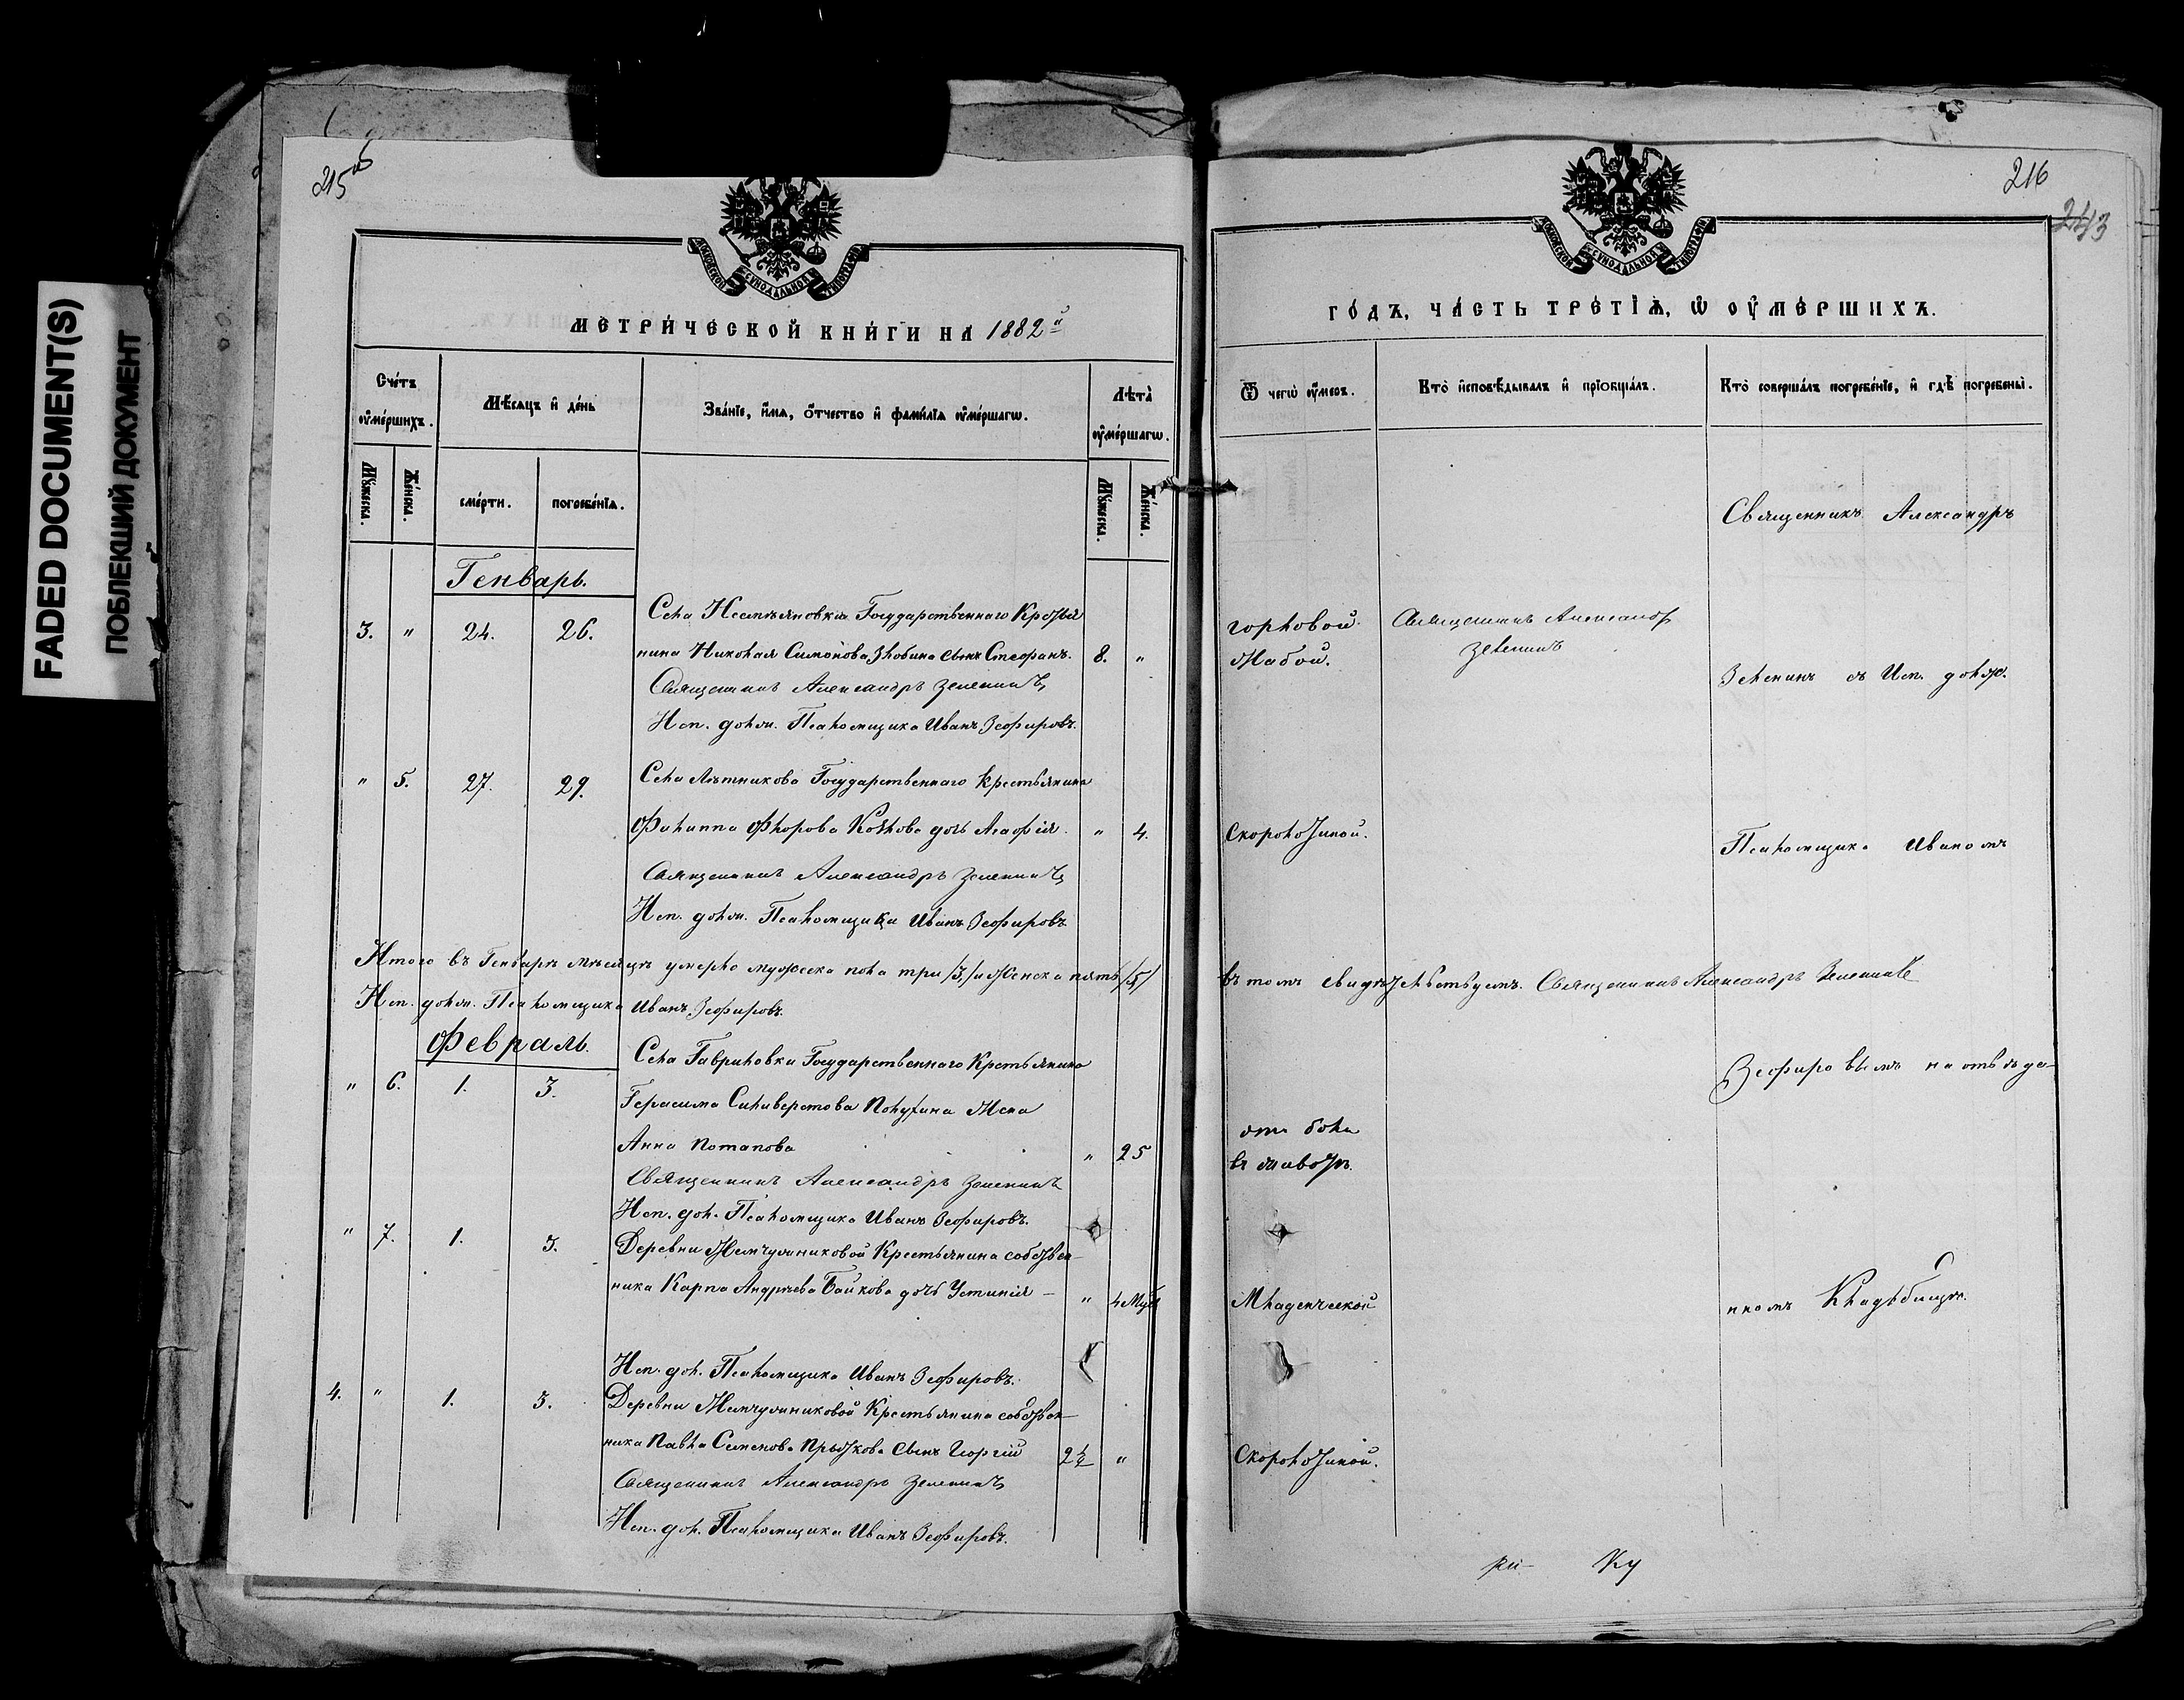 FADED DOCUMENT(S)
ПОБЛЕКШИЙ ДОКУМЕНТ
215об
МОСКОВСКОЙ СѴНОДАЛЬНОЙ ТИПОГРАФІИ
МЕТРИ́ЧЕСКОЙ КНИ́ГИ НА 1882й
Сче́тъ ᲂумершихъ.
Мѣ́сяцъ и де́нь
Зва́нїе, и́мя, ѻ́тчество и фами́лїа ᲂуме́ршагѡ.
Лѣта̀ ᲂуме́ршагѡ.
Мꙋ́жеска.
Же́нска.
сме́рти.
погребе́нїѧ.
Мꙋ́жеска.
Же́нска.
Генварь.
3. " 24. 26. Села Государственнаго Кресья
нина Николая Симонова Злобина сынъ Стефанъ. 8. "
Священникъ Александръ Зеленинъ
Исп. долж. Псаломщика Иванъ Зефировъ.
" 5. 27. 29. Села Лѣтникова Государственнаго Крестьянина
Филиппа Флорова дочь Агафія. " 4.
Священникъ Александръ Зеленинъ
Исп. долж. Псаломщика Иванъ Зефировъ.
Итого въ Генварѣ мѣсяцѣ умерло мужеска пола три /3,/ и женска пять /5/
Исп. долж. Псаломщика Иванъ Зефировъ.
Февраль.
Села Гавриловки Государственнаго Крестьянина
" 6. 1. 3. Герасима Силиверстова жена
Анна Потапова " 25
Священникъ Александръ Зеленинъ
Исп. дол. Псаломщика Иванъ Зефировъ.
" 7. 1. 3. Деревни Жемчужниковой Крестьянина собствен-
ника Карпа Андреева Байкова дочь Устинія - " 4 мѣс
Исп. дол. Псаломщика Иванъ Зефировъ.
4. " 1. 3. Деревни Жемчужниковой Крестьянина собствен-
ника Павла Семенова сынъ Георгій 2½ "
Священникъ Александръ Зеленинъ
Исп. дол. Псаломщика Иванъ Зефировъ.
216
243
МОСКОВСКОЙ СѴНОДАЛЬНОЙ ТИПОГРАФІИ
ГО́ДЪ, ЧА́СТЬ ТРЕ́ТІѦ, Ѡ ОУМЕ́РШИХЪ.
Ѿ чегѡ̀ ᲂу́меръ.
Кто̀ и҆сповѣ́дывалъ и҆ прїѡбща́лъ.
Кто̀ соверша́лъ погребе́нїе, и҆ гдѣ̀ погребены̀.
Священникъ Александръ
горловой Священникъ Александръ
жабой. Зеленинъ
Зеленинъ съ Исп. долж.
Скоротѣчной.
Псаломщика Иваномъ
въ томъ свидѣтельствуемъ. Священникъ Александръ Зеленинъ
Зефировымъ на отведе-
отъ боли
въ животѣ.
Младенческой
нномъ Кладбищѣ.
Скоротѣчной.
Ку